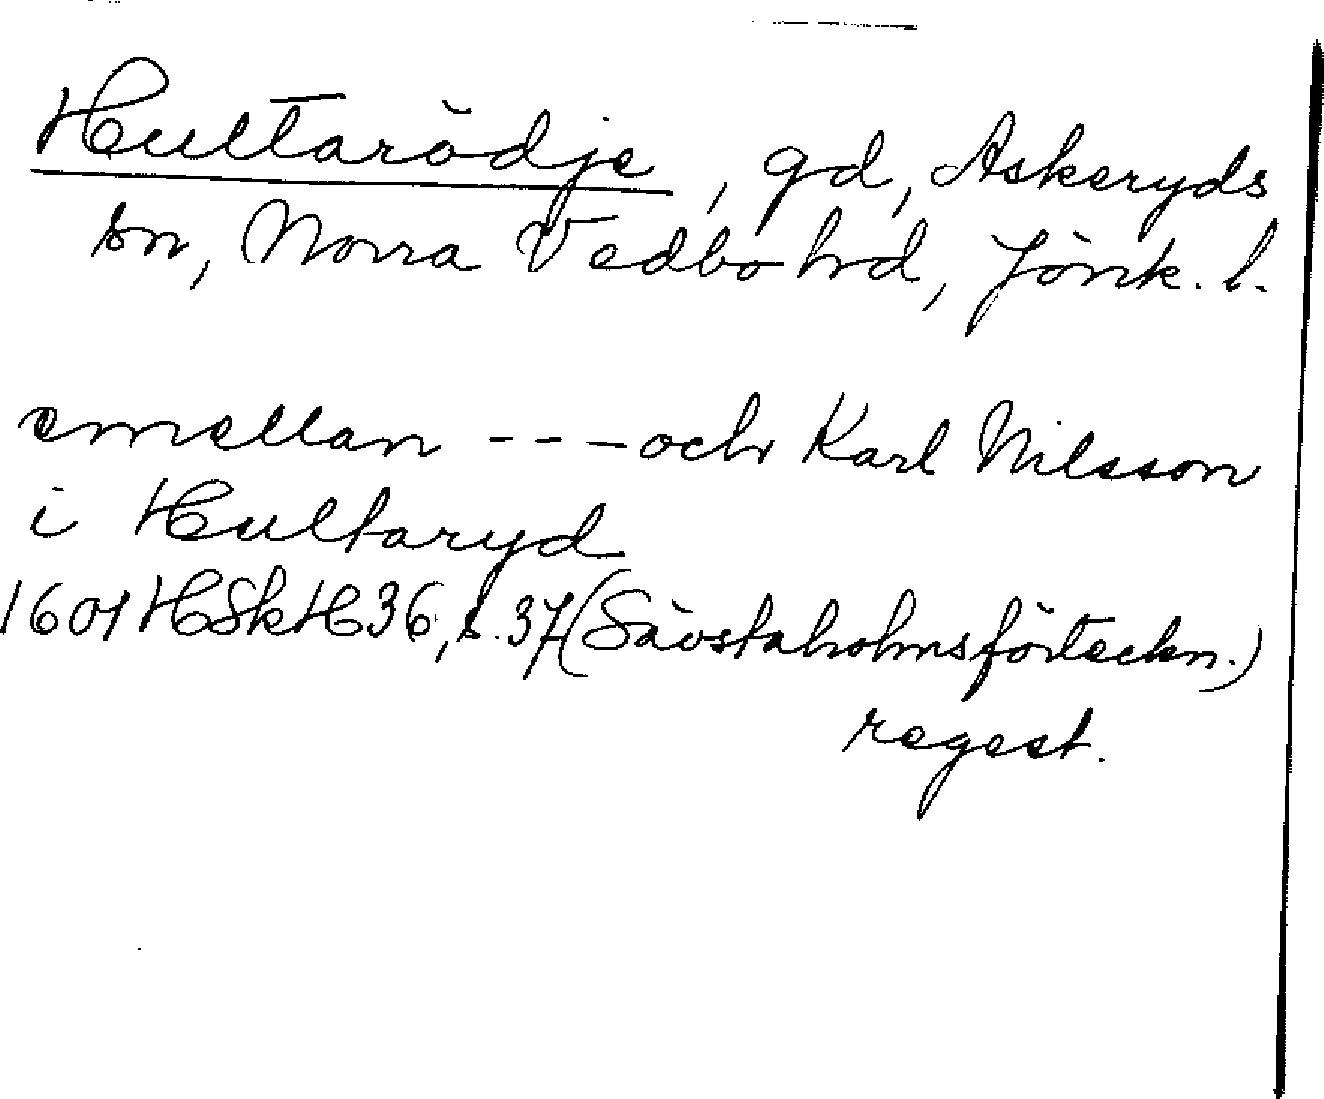 Hultarödje, gd, Askeryds
sn, Norra Vedbo hd, Jönk. l.
emellan - - - och Karl Nilsson
i Hultaryd
1601 HSkH 36, s. 37 (Sävstaholmsförteckn.)
regest.